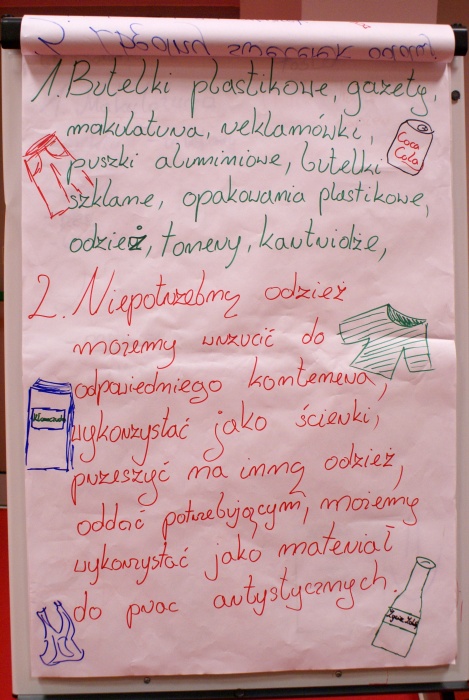 1. Butelki plastikowe, gazety,
makulatura, reklamówki,
puszki aluminiowe, butelki
szklane, opakowania plastikowe,
odzież, tonery, kartridże,
Coca
Cola
2. Niepotrzebną odzież
możemy wrzucić do
odpowiedniego kontenera,
wykorzystać jako ścierki,
przeszyć na inną odzież,
oddać potrzebującym, możemy
wykorzystać jako materiał
do prac artystycznych.